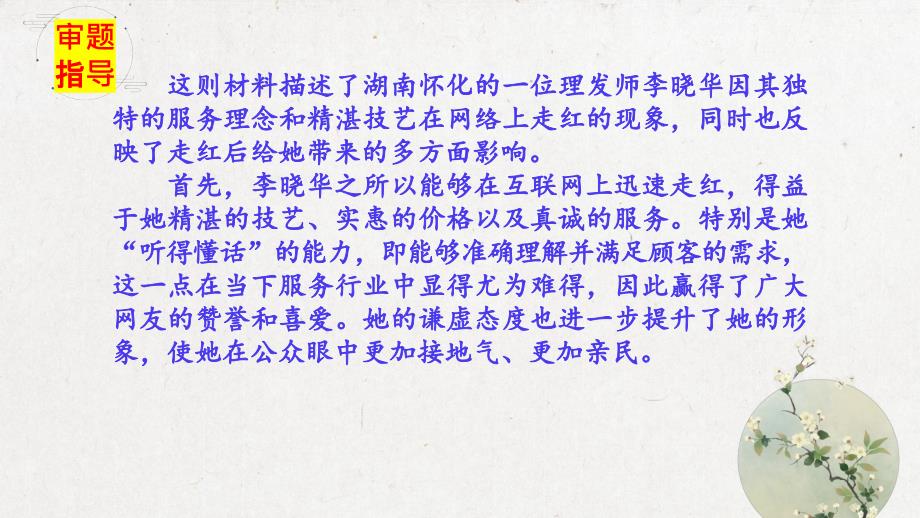 审题
指导
这则材料描述了湖南怀化的一位理发师李晓华因其独
特的服务理念和精湛技艺在网络上走红的现象，同时也反
映了走红后给她带来的多方面影响。
首先，李晓华之所以能够在互联网上迅速走红，得益
于她精湛的技艺、实惠的价格以及真诚的服务。特别是她
“听得懂话”的能力，即能够准确理解并满足顾客的需求，
这一点在当下服务行业中显得尤为难得，因此赢得了广大
网友的赞誉和喜爱。她的谦虚态度也进一步提升了她的形
象，使她在公众眼中更加接地气、更加亲民。